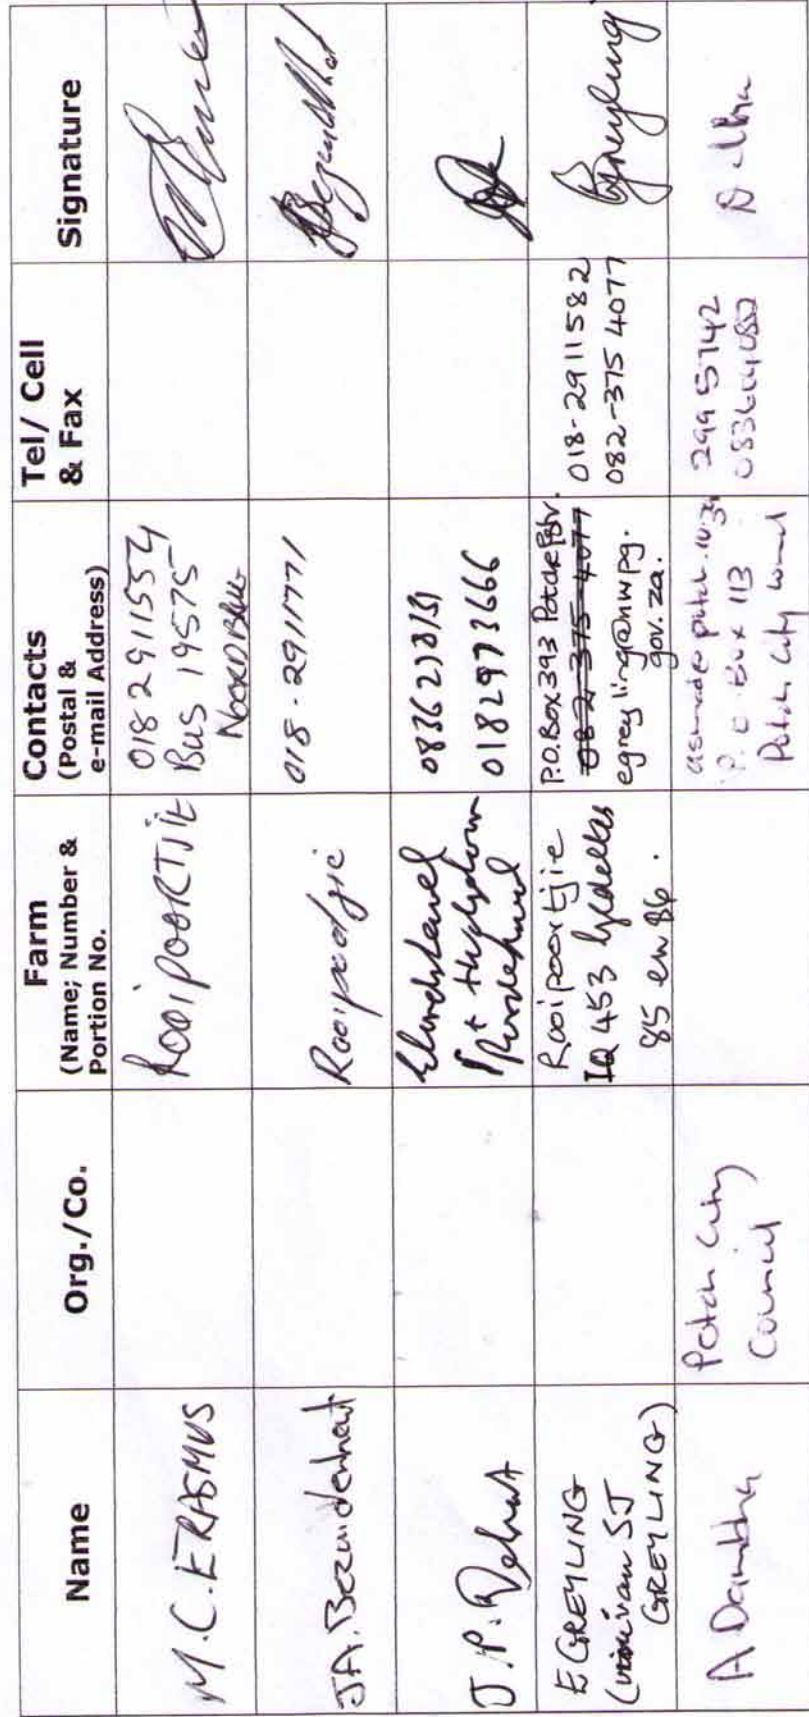 Name
Org./Co.
Farm
(Name; Number &
Portion No.
Contacts
(Postal &
e-mail Address)
Tel/ Cell
& Fax
Signature
M.C. ERASMUS
ROOIPOORTJIE
018 2911554
Bus 19575
NOORDBRUG
J.A. Bezuidenhout
Rooipoortjie
018-2911771
J.P.
018 2973666
E GREYLING
(van SJ
GREYLING)
Rooipoortjie
IQ 453 Gedeeltes
85 en 86.
P.O. Box 393 Potchefstr.
082-375-4077
egreyling@nwpg.
gov.za.
018-2911582
082-375 4077
Greyling
A
Potch City
Council
P.O Box 113
Potch City
299 5742